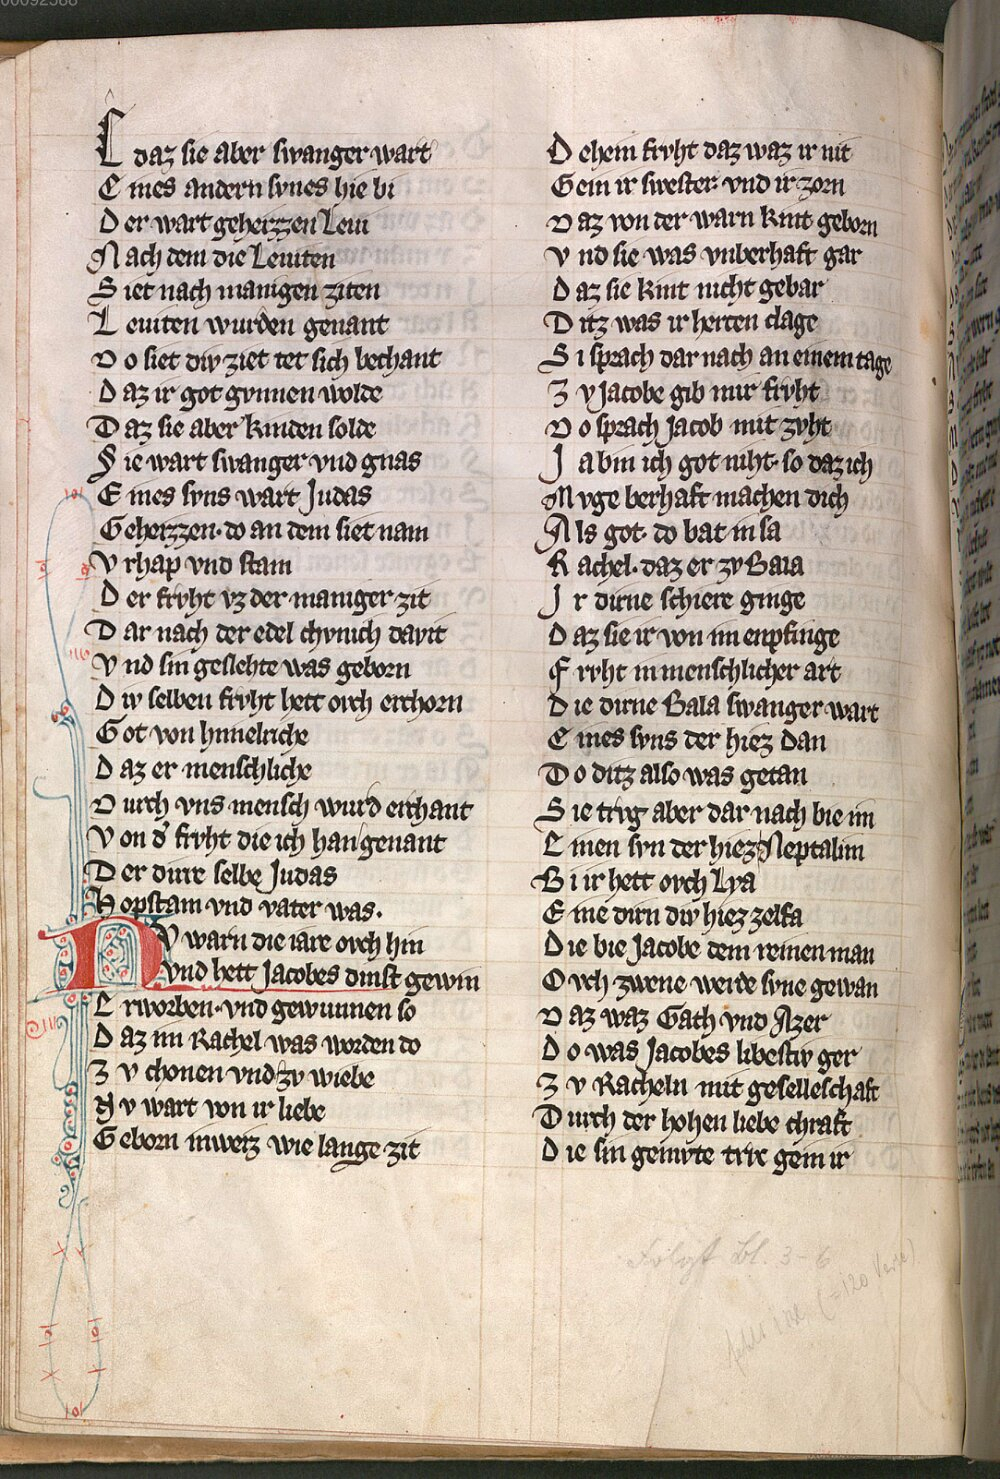 00092588
E daz sie aber swanger wart
Eines andern synes hie bi
Der wart geheizzen Leui
Nach dem die Leuiten
Siet nach manigen ziten
Leuiten wurden genant
Do siet div ziet tet sich bechant
Daz ir got gvnnen wolde
Daz sie aber kinden solde
Sie wart swanger vnd gnas
Eines syns wart Judas
Geheizzen. do an dem siet nam
Vrhap vnd stam
Der frvht vz der maniger zit
Dar nach der edel chvnich dauit
Vnd sin geslehte was geborn
Div selben frvht hett ovch erchorn
Got von himelriche
Daz er menschliche
Durch vns mensch wurd erchant
Von d' frvht die ich han genant
Der dirre selbe Judas
Hopstam vnd vater was.
NV warn die iare ovch hin
vnd hett Jacobes dinst gewin
Erworben. vnd gewunnen so
Daz im Rachel was worden do
Zv chonen vnd zv wiebe
Nv wart von ir liebe
Geborn inweiz wie lange zit
Dehein frvht daz waz ir nit
Gein ir swester vnd ir zorn
Daz von der warn kint geborn
Vnd sie was vnberhaft gar
Daz sie kint nicht gebar
Ditz was ir herten clage
Si sprach dar nach an einem tage
Zv Jacobe gib mir frvht
Do sprach Jacob mit zvht
Ja bin ich got niht. so daz ich
Mvge berhaft machen dich
Als got. do bat in sa
Rachel. daz er zv Bala
Ir dirne schiere ginge
Daz sie ir von im enpfinge
Frvht in menschlicher art
Die dirne Bala swanger wart
Eines syns der hiez Dan
Do ditz also was getan
Sie trvg aber dar nach bie im
Einen syn der hiez Neptalim
Bi ir hett ovch Lya
Eine dirn div hiez zelfa
Die bie Jacobe dem reinen man
Ovch zwene werde syne gewan
Daz waz Gath vnd Azer
Do was Jacobes libestiv ger
Zv Racheln mit geselleschaft
Durch der hohen liebe chraft
Die sin gemvte trvc gein ir
Folgt Bl. 3-6
(=120 Verse)